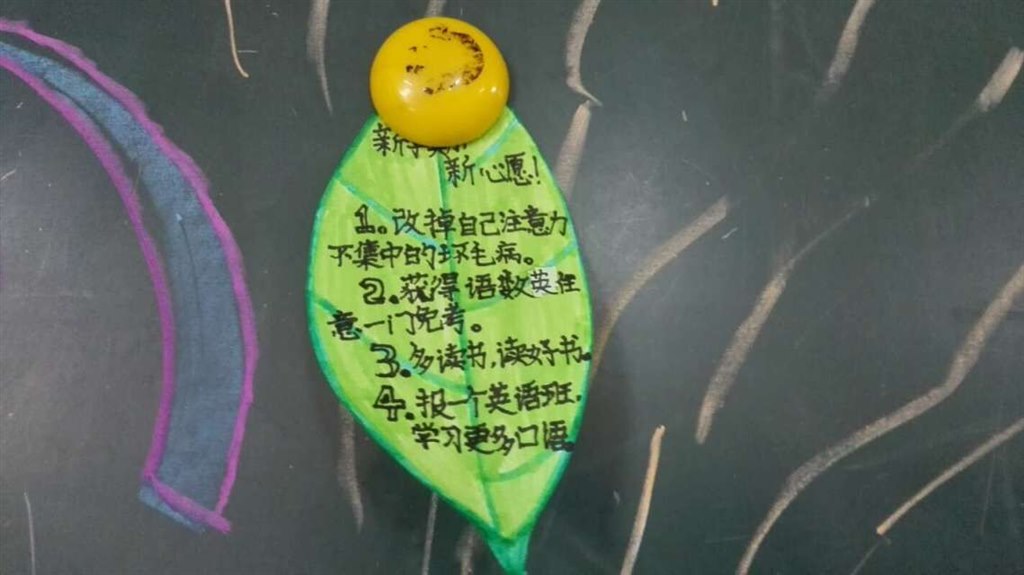 新
新心愿!
1.改掉自己注意力
不集中的坏毛病。
2.获得语数英任
意一门免考。
3.多读书,读好书。
4.报一个英语班,
学习更多口语。